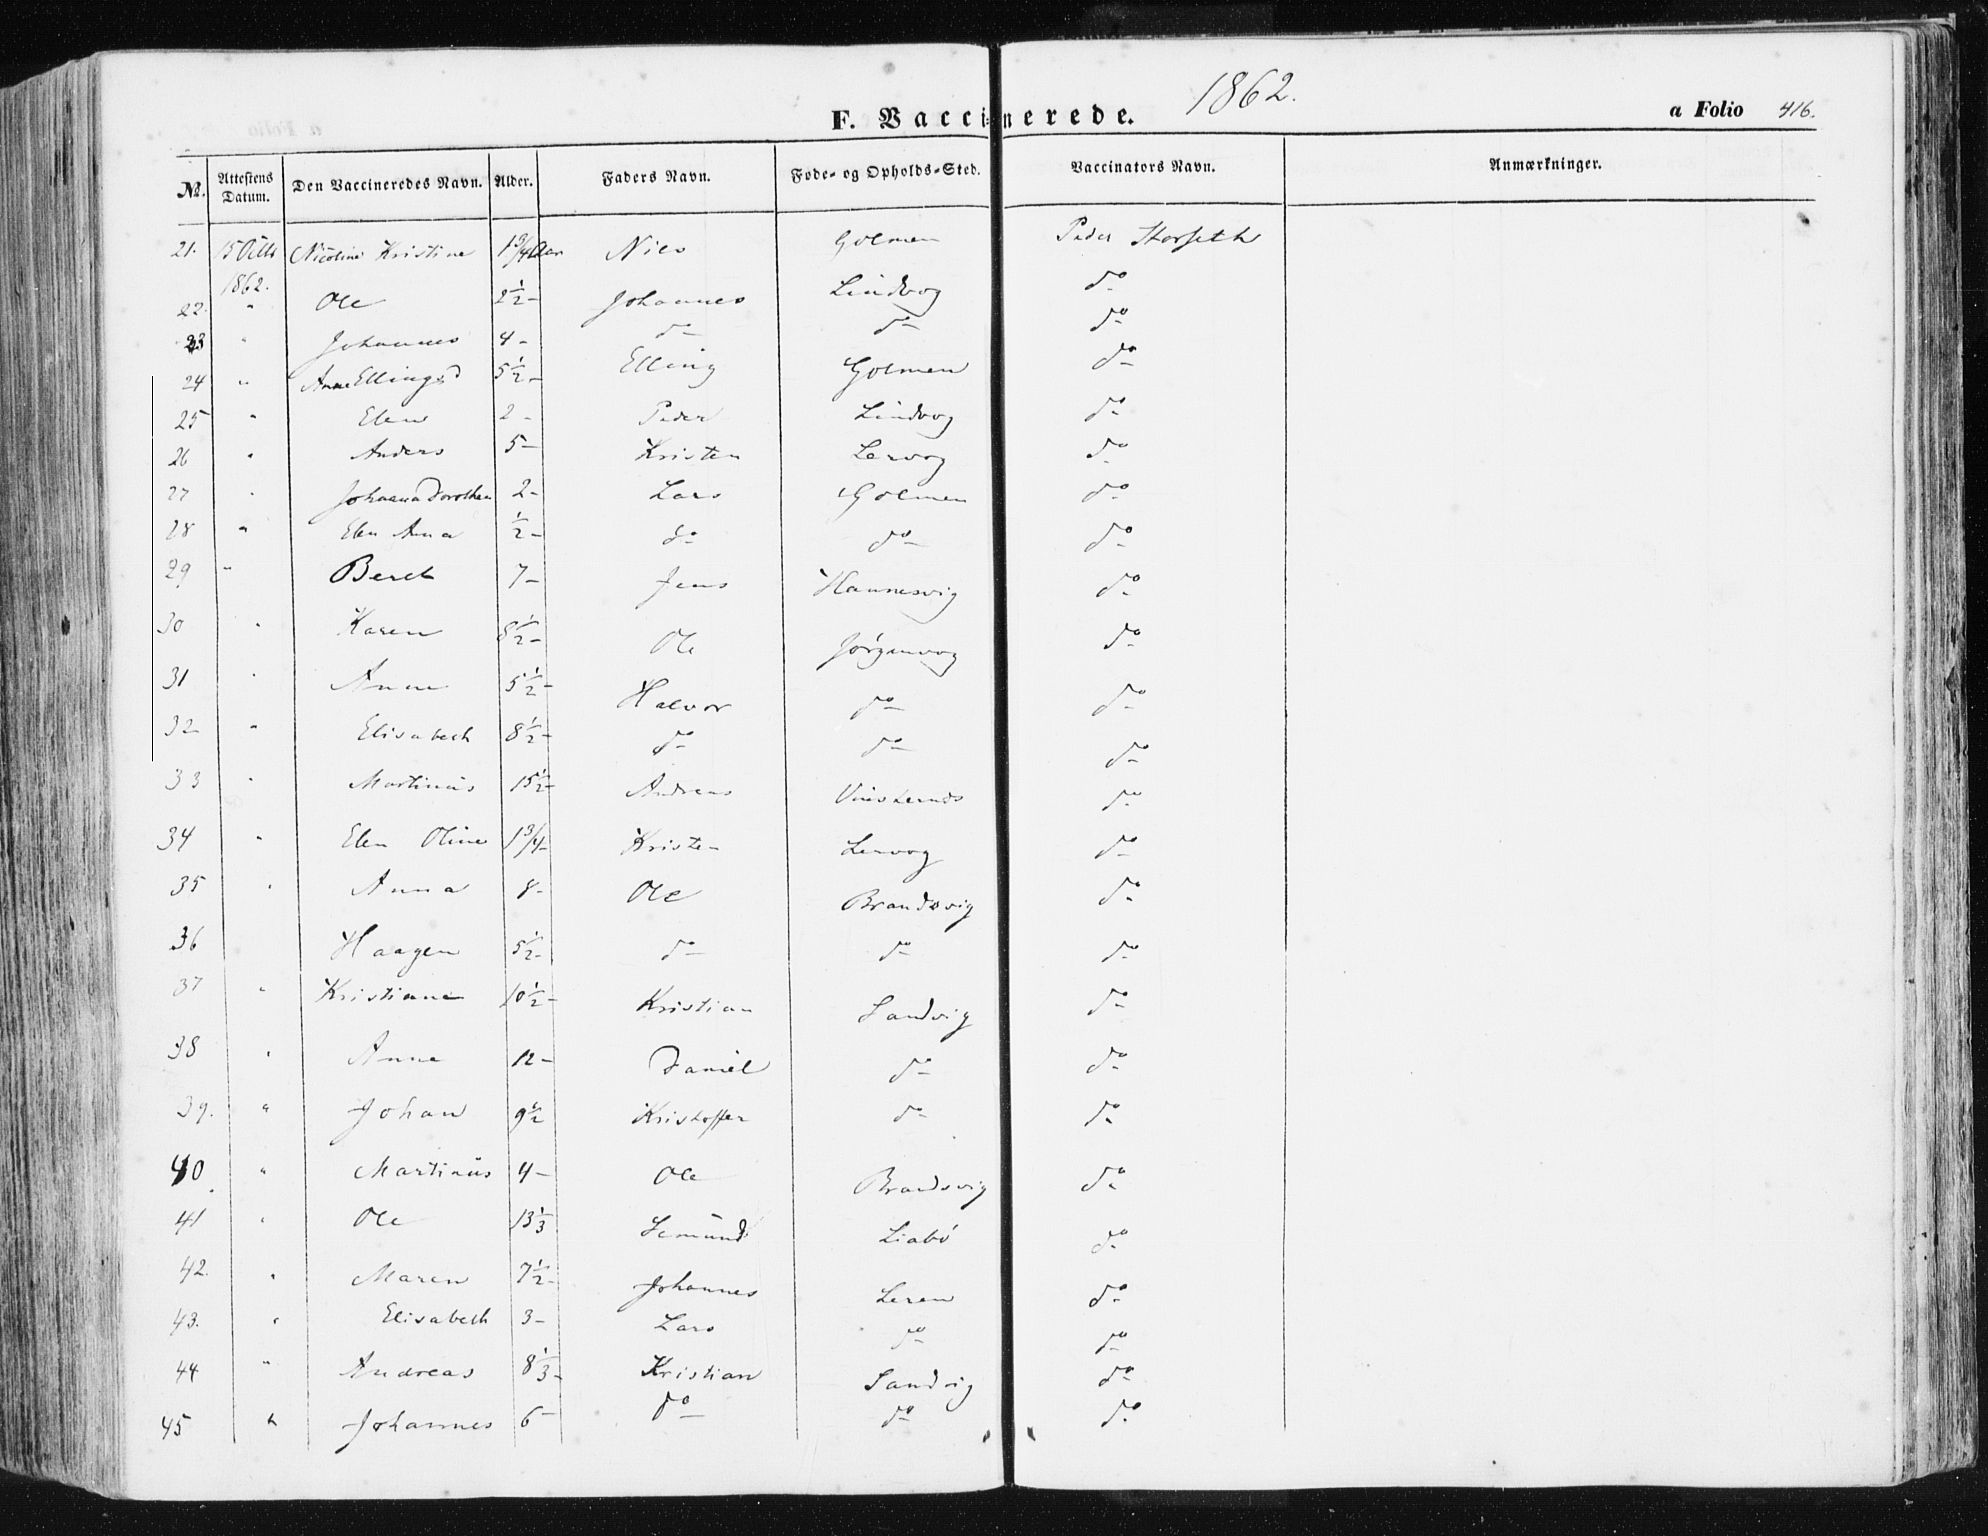 F. Vaccinerede. 1862. a Folio 416.
No. Attestens Datum. Den Vaccineredes Navn. Alder. Faders Navn. Føde- og Opholds-Sted. Vaccinators Navn. Anmærkninger.
21. 15 1862. Nicoline Kristine 1 3/4 Aar Niels Golmen Peder Storseth
22. " Ole 2 1/2 - Johannes Lindvog do
23 " Johannes 4 - do do do
24 " Anne Ellingsd 5 1/2 - Elling Golmen do
25 " Elen 2 - Peder Lindvog do
26 " Anders 5 - Kristen Lervog do
27 " Johanna Dorothea 2 - Lars Golmen do
28 " Elen Anna 1/2 - do do do
29 " Beret 7 - Jens Hannesvig do
30 " Karen 8 1/2 - Ole Jørgenvog do
31 " Anne 5 1/2 - Halvor do do
32 " Elisabeth 8 1/2 - do do do
33 " Martinus 15 1/2 - Andreas do
34 " Elen Oline 1 3/4 - Kristen Lervog do
35 " Anna 8 - Ole Brandsvig do
36 Haagen 5 1/2 - do do do
37 " Kristiane 10 1/2 - Kristian Sandvig do
38 " Anne 12 - Daniel do do
39. " Johan 9 1/2 Kristoffer do do
40 " Martinus 4 - Ole Brandsvig do
41 " Ole 13 1/3 Semund Liabø do
42. " Maren 7 1/2 - Johannes Leren do
43. " Elisabeth 3 - Lars do do
44 " Andreas 8 1/3 - Kristian Sandvig do
45 " Johannes 6 - do do do